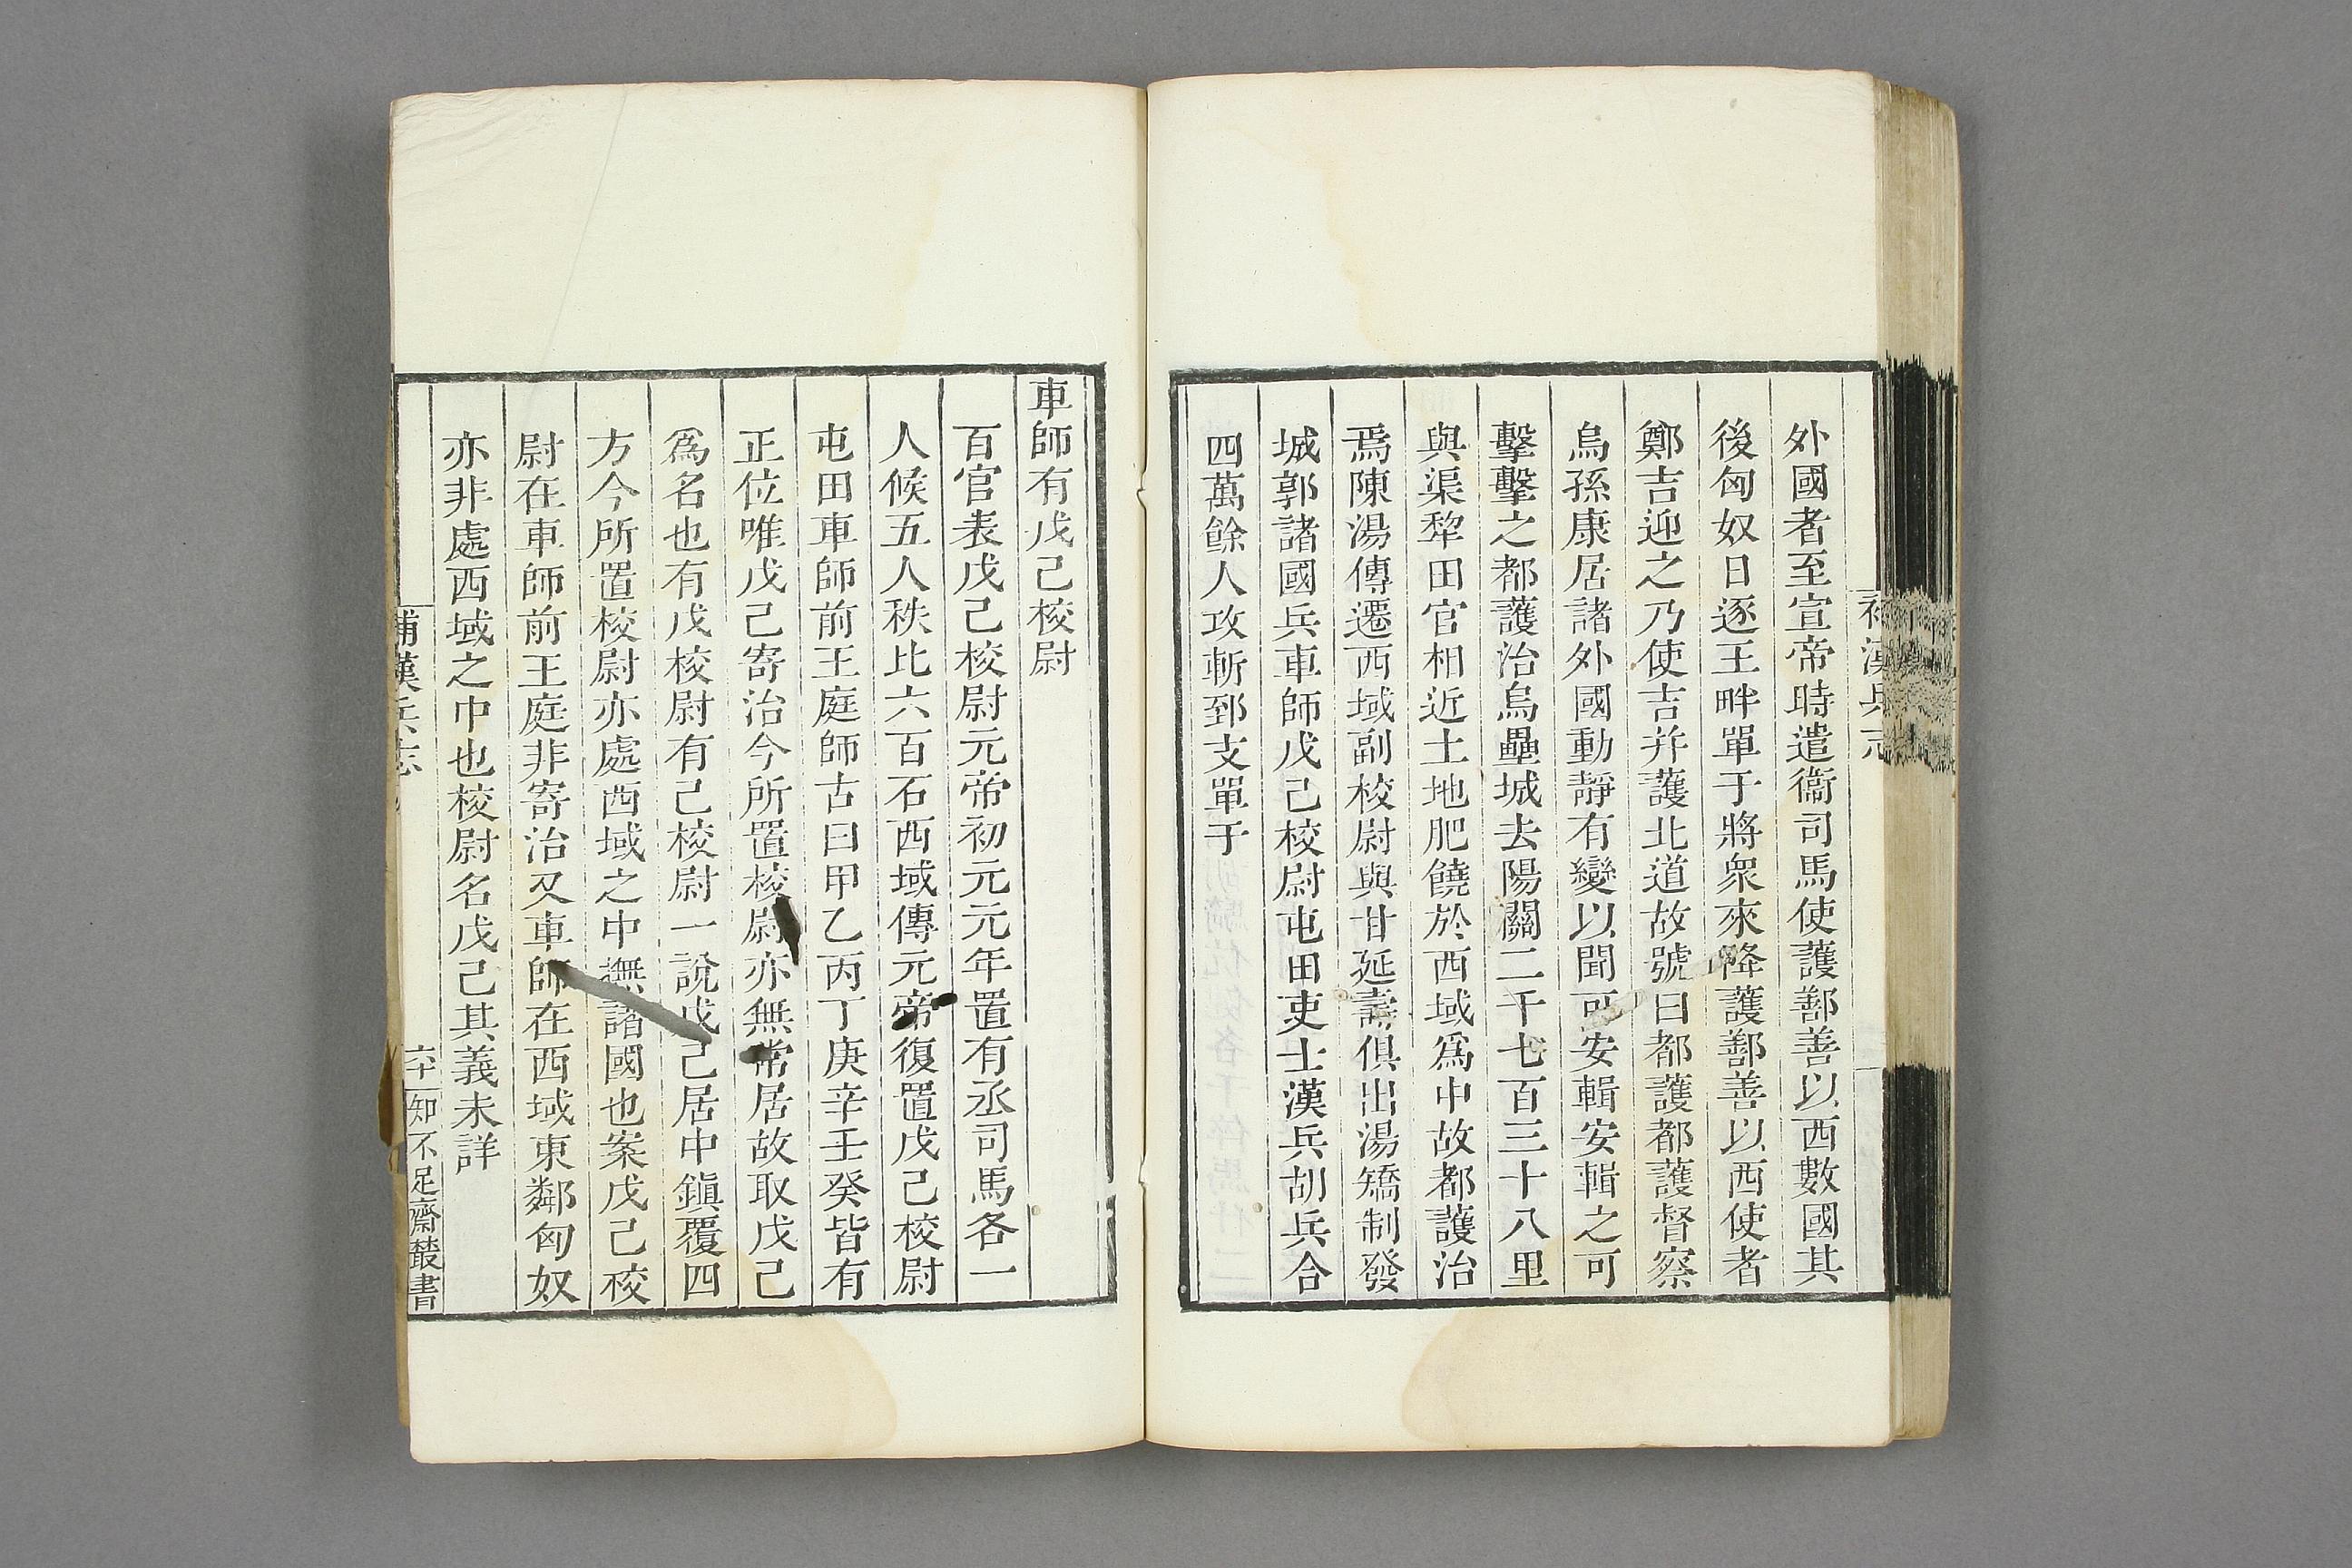 外國者至宣帝時遣衞司馬使護鄯善以西數國其
後匈奴日逐王畔單于將衆來降護鄯善以西使者
鄭吉迎之乃使吉并護北道故號曰都護都護督察
烏孫康居諸外國動靜有變以聞可安輯安輯之可
擊擊之都護治烏壘城去陽關二千七百三十八里
與渠犂田官相近土地肥饒於西域爲中故都護治
焉陳湯傳遷西域副校尉與甘延壽俱出湯矯制發
城郭諸國兵車師戊己校尉屯田吏士漢兵胡兵合
四萬餘人攻斬郅支單于
車師有戊己校尉
百官表戊己校尉元帝初元元年置有丞司馬各一
人候五人秩比六百石西域傳元帝復置戊己校尉
屯田車師前王庭師古曰甲乙丙丁庚辛壬癸皆有
正位唯戊己寄治今所置校尉亦無常居故取戊己
爲名也有戊校尉有己校尉一說戊己居中鎭覆四
方今所置校尉亦處西域之中撫諸國也案戊己校
尉在車師前王庭非寄治又車師在西域東鄰匈奴
亦非處西域之中也校尉名戊己其義未詳
補漢兵志
六十一
知不足齋叢書